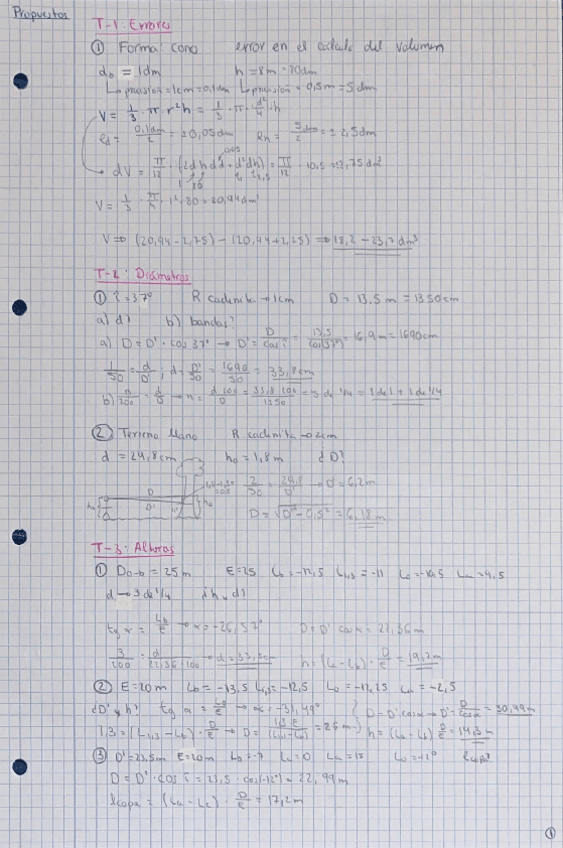 Propuestos
T-1: Errores
① Forma: cono error en el calculo del volumen
d₀ = 1dm h = 8m = 80dm
↳ precision = 1cm = 0,1dm ↳ precision = 0,5m = 5dm
V = 1/3 · π · r²h = 1/3 · π · d²/4 · h
= 0,1dm/2 = ±0,05dm = 5dm/2 = ±2,5dm
dV = π/12 · (2dh dd + d²dh) = π/12 · 10,5 = 2,75d
V = 1/3 · π/4 · 1² · 80 = 20,94dm³
V ⇒ (20,94-2,75) - (20,94+2,75) ⇒ 18,2 - 23,7 dm³
T-2: Diámetros
① i = 37° R cadenita → 1cm D = 13,5m = 1350cm
a) d? b) bandas?
a) D = D' · cos 37° → D' = D/cos i = 13,5/cos(37°) = 16,9m = 1690cm
1/50 = d/D' ; d = D'/50 = 1690/50 = 33,8cm
b) n/200 = d/D → n = = 1 de 1 + 1 de 1/4
② Terreno llano R cadenita → 2cm
d = 24,8cm h₀ = 1,8m ¿D?
2/50 = 24,8/D' → D' = 6,2m
D = √(D'² - 0,5²) = 6,18m
T-3: Alturas
① D₀-b = 25m E = 25 Lb = -12,5 L1,3 = -11 La = 4,5
d → 3 de 1/4 ¿h y d?
tg α = Lb/E → α = -26,57° D = D' cos α = 22,36m
3/200 = d/22,36·100 → d = 33,5cm h = (La - Lb) · D/E =
② E = 20m Lb = -13,5 L1,3 = -12,5 L = -12,25 La = -2,5
¿D' y h? tg α = → α = -31,40° D = D' cos α → D' = D/cos α = 30,99m
1,3 = (L1,3 - Lb) · D/E → D = 1,3·E/(L1,3 - Lb) = 26m h = (La - Lb) D/E = 14,3m
③ D' = 23,5m E = 20m Lb = -7 L = 0 La = 15
D = D' · cos i = 23,5 · cos(-12°) = 22,99m
lcopa = (La - Lc) · D/E = 17,2m
①